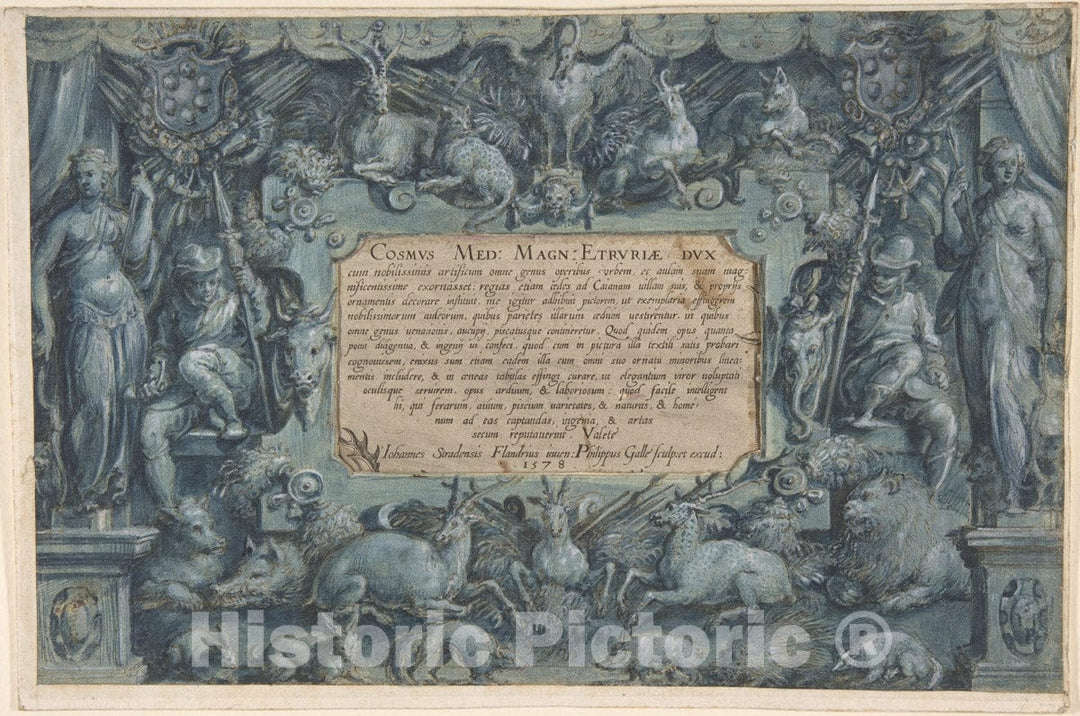 COSMVS MED: MAGN: ETRVRIÆ DVX
cum nobilissimis artificum omne genus operibus vrbem, et aulam suam mag
nificentissime exornasset: regias etiam ædes ad Caianam uillam suis, & propriis
ornamentis decorare instituit, me igitur adhibuit pictorem, ut exemplaria effingerem
nobilissimorum aulæorum, quibus parietes illarum ædium uestirentur, in quibus
omne genus uenationis, aucupij, piscatusque contineretur. Quod quidem opus quanta
potui diligentia, & ingenij ui confeci, quod cum in pictura illa textili satis probari
cognouissem, enixus sum etiam eadem illa cum omni suo ornatu minoribus linea=
mentis includere, & in æneas tabulas effingi curare, ut elegantium viror uoluptati
oculisque seruirem. opus arduum, & laboriosum: quod facile intelligent
hi, qui ferarum, auium, piscium varietates, & naturas, & homi=
num ad eas captandas, ingenia, & artes
secum reputauerint. Valete
Iohannes Stradensis Flandrius inuen: Philippus Galle sculpsit excud:
1578
Historic Pictoric ®